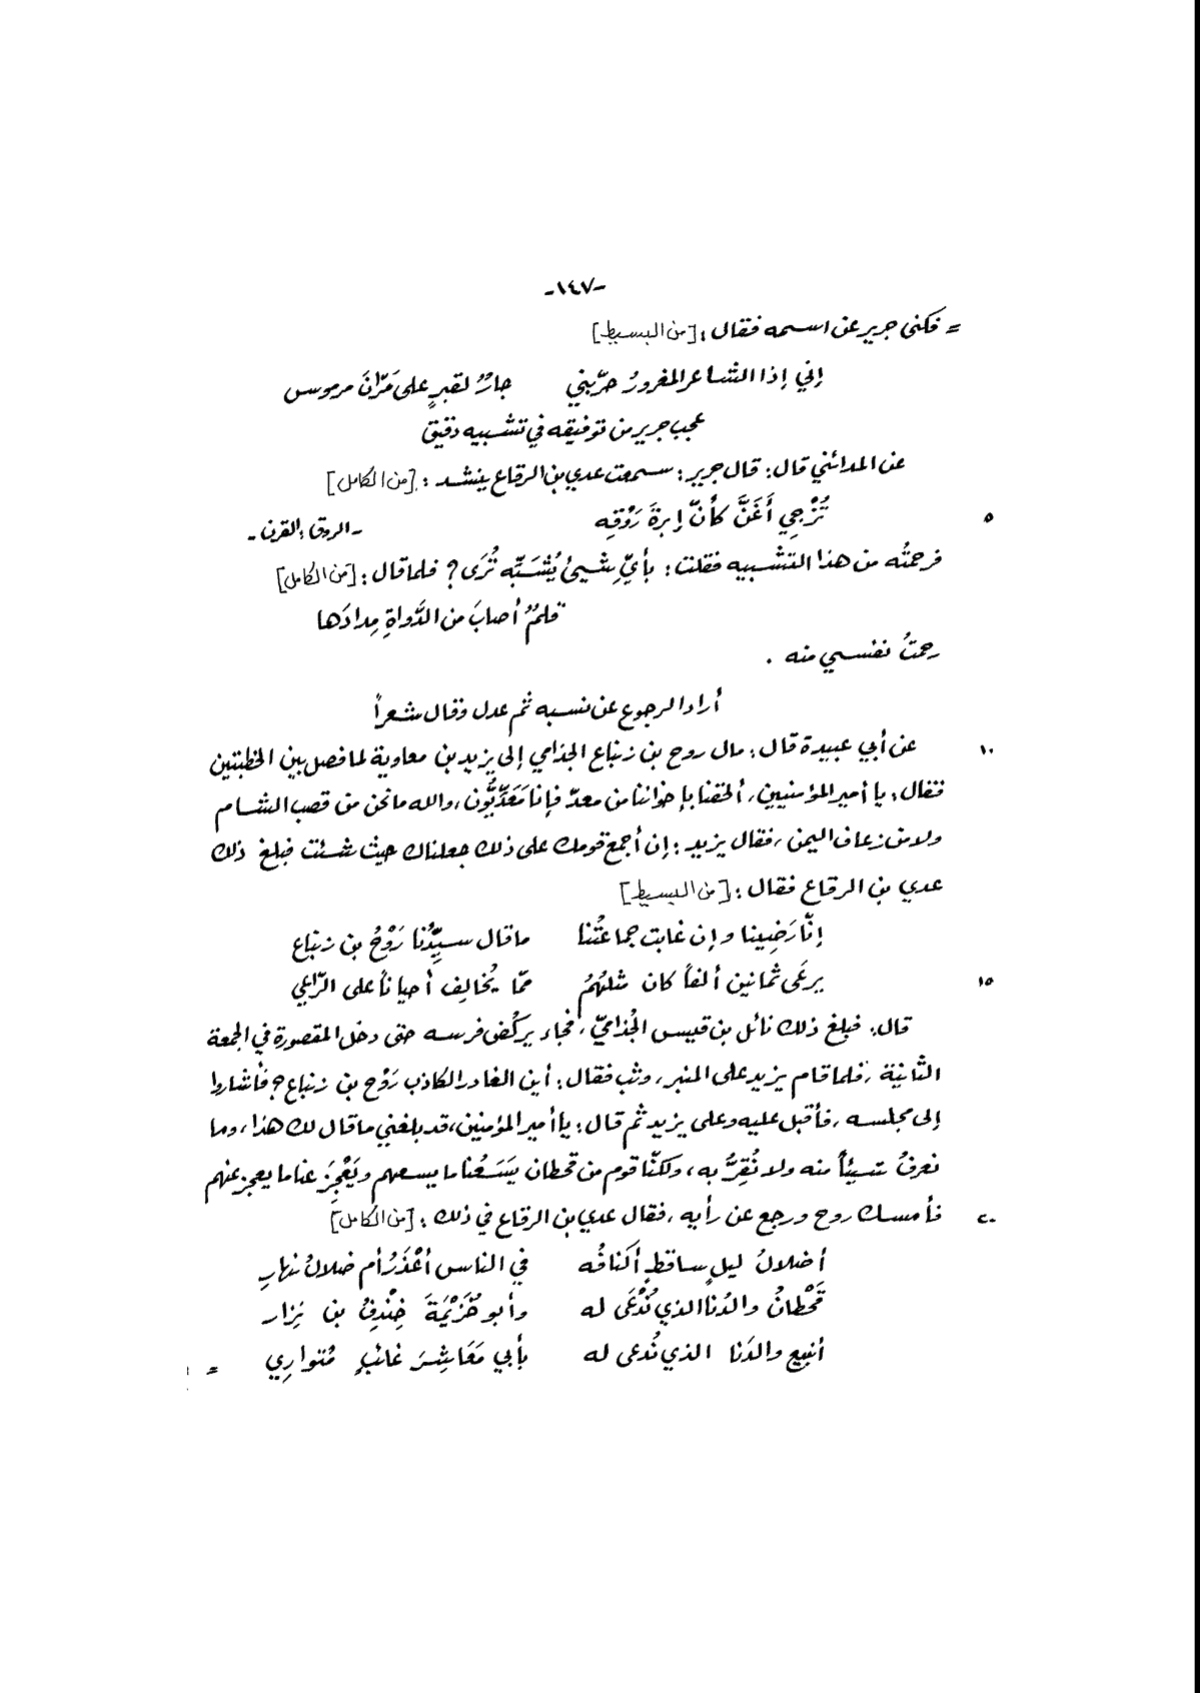 -١٤٧-
= فكنى جرير عن اسمه فقال: [من البسيط]
إني إذا الشاعر المغرورُ حرّبني جارٌ لقبرٍ على مَرّانَ مرموس
عجب جرير من توفيقه في تشبيه دقيق
عن المدائني قال: قال جرير: سمعت عدي بن الرقاع ينشد: [من الكامل]
٥ تُزْجِي أَغَنَّ كأنّ إبرةَ رَوْقِه - الروق: القرن -
فرحمتُه من هذا التشبيه فقلت: بأيِّ شيئٍ يُشَبِّه تُرَى؟ فلما قال: [من الكامل]
قلمٌ أصابَ من الدَّواةِ مِدادَها
رحمتُ نفسي منه .
أراد الرجوع عن نسبه ثم عدل وقال شعراً
١٠ عن أبي عبيدة قال: مال روح بن زنباع الجذامي إلى يزيد بن معاوية لما فصل بين الخطبتين
فقال: يا أمير المؤمنيين، ألحقنا بإخواننا من معدّ فإنا مَعَدِّيُّون، والله ما نحن من قصب الشام
ولا من زعاف اليمن، فقال يزيد: إن أجمع قومك على ذلك جعلناك حيث شئت فبلغ ذلك
عدي بن الرقاع فقال: [من البسيط]
إنّا رَضِينا وإن غابت جماعتُنا ما قال سيِّدُنا رَوْحُ بن زنباع
١٥ يرعَى ثمانين ألفاً كان مثلهُمُ ممّا يُخالِف أحياناً على الرّاعي
قال: فبلغ ذلك ناتل بن قيس الجُذاميّ، فجاء يركُض فرسه حتى دخل المقصورة في الجمعة
الثانية، فلما قام يزيد على المنبر، وثب فقال: أين الغادر الكاذب رَوْح بن زنباع؟ فأشاروا
إلى مجلسه، فأقبل عليه وعلى يزيد ثم قال: يا أمير المؤمنين، قد بلغني ما قال لك هذا، وما
نعرفُ شيئاً منه ولا نُقِرُّ به، ولكنّا قوم من قحطان يَسَعُنا ما يسعهم ويَعْجِزَ عنا ما يعجز عنهم
٢٠ فأمسك روح ورجع عن رأيه، فقال عدي بن الرقاع في ذلك: [من الكامل]
أضلالُ ليلٍ ساقطٍ أكنافُه في الناس أعْذَرُ أم ضلالُ نهارِ
قَحْطانُ والدُنا الذي نُدْعَى له وأبو خُزَيْمَةَ خِنْدِفُ بن نِزار
أنبيع والدَنا الذي نُدعى له بأبي مَعَاشِرَ غائبٍ مُتوارِي =